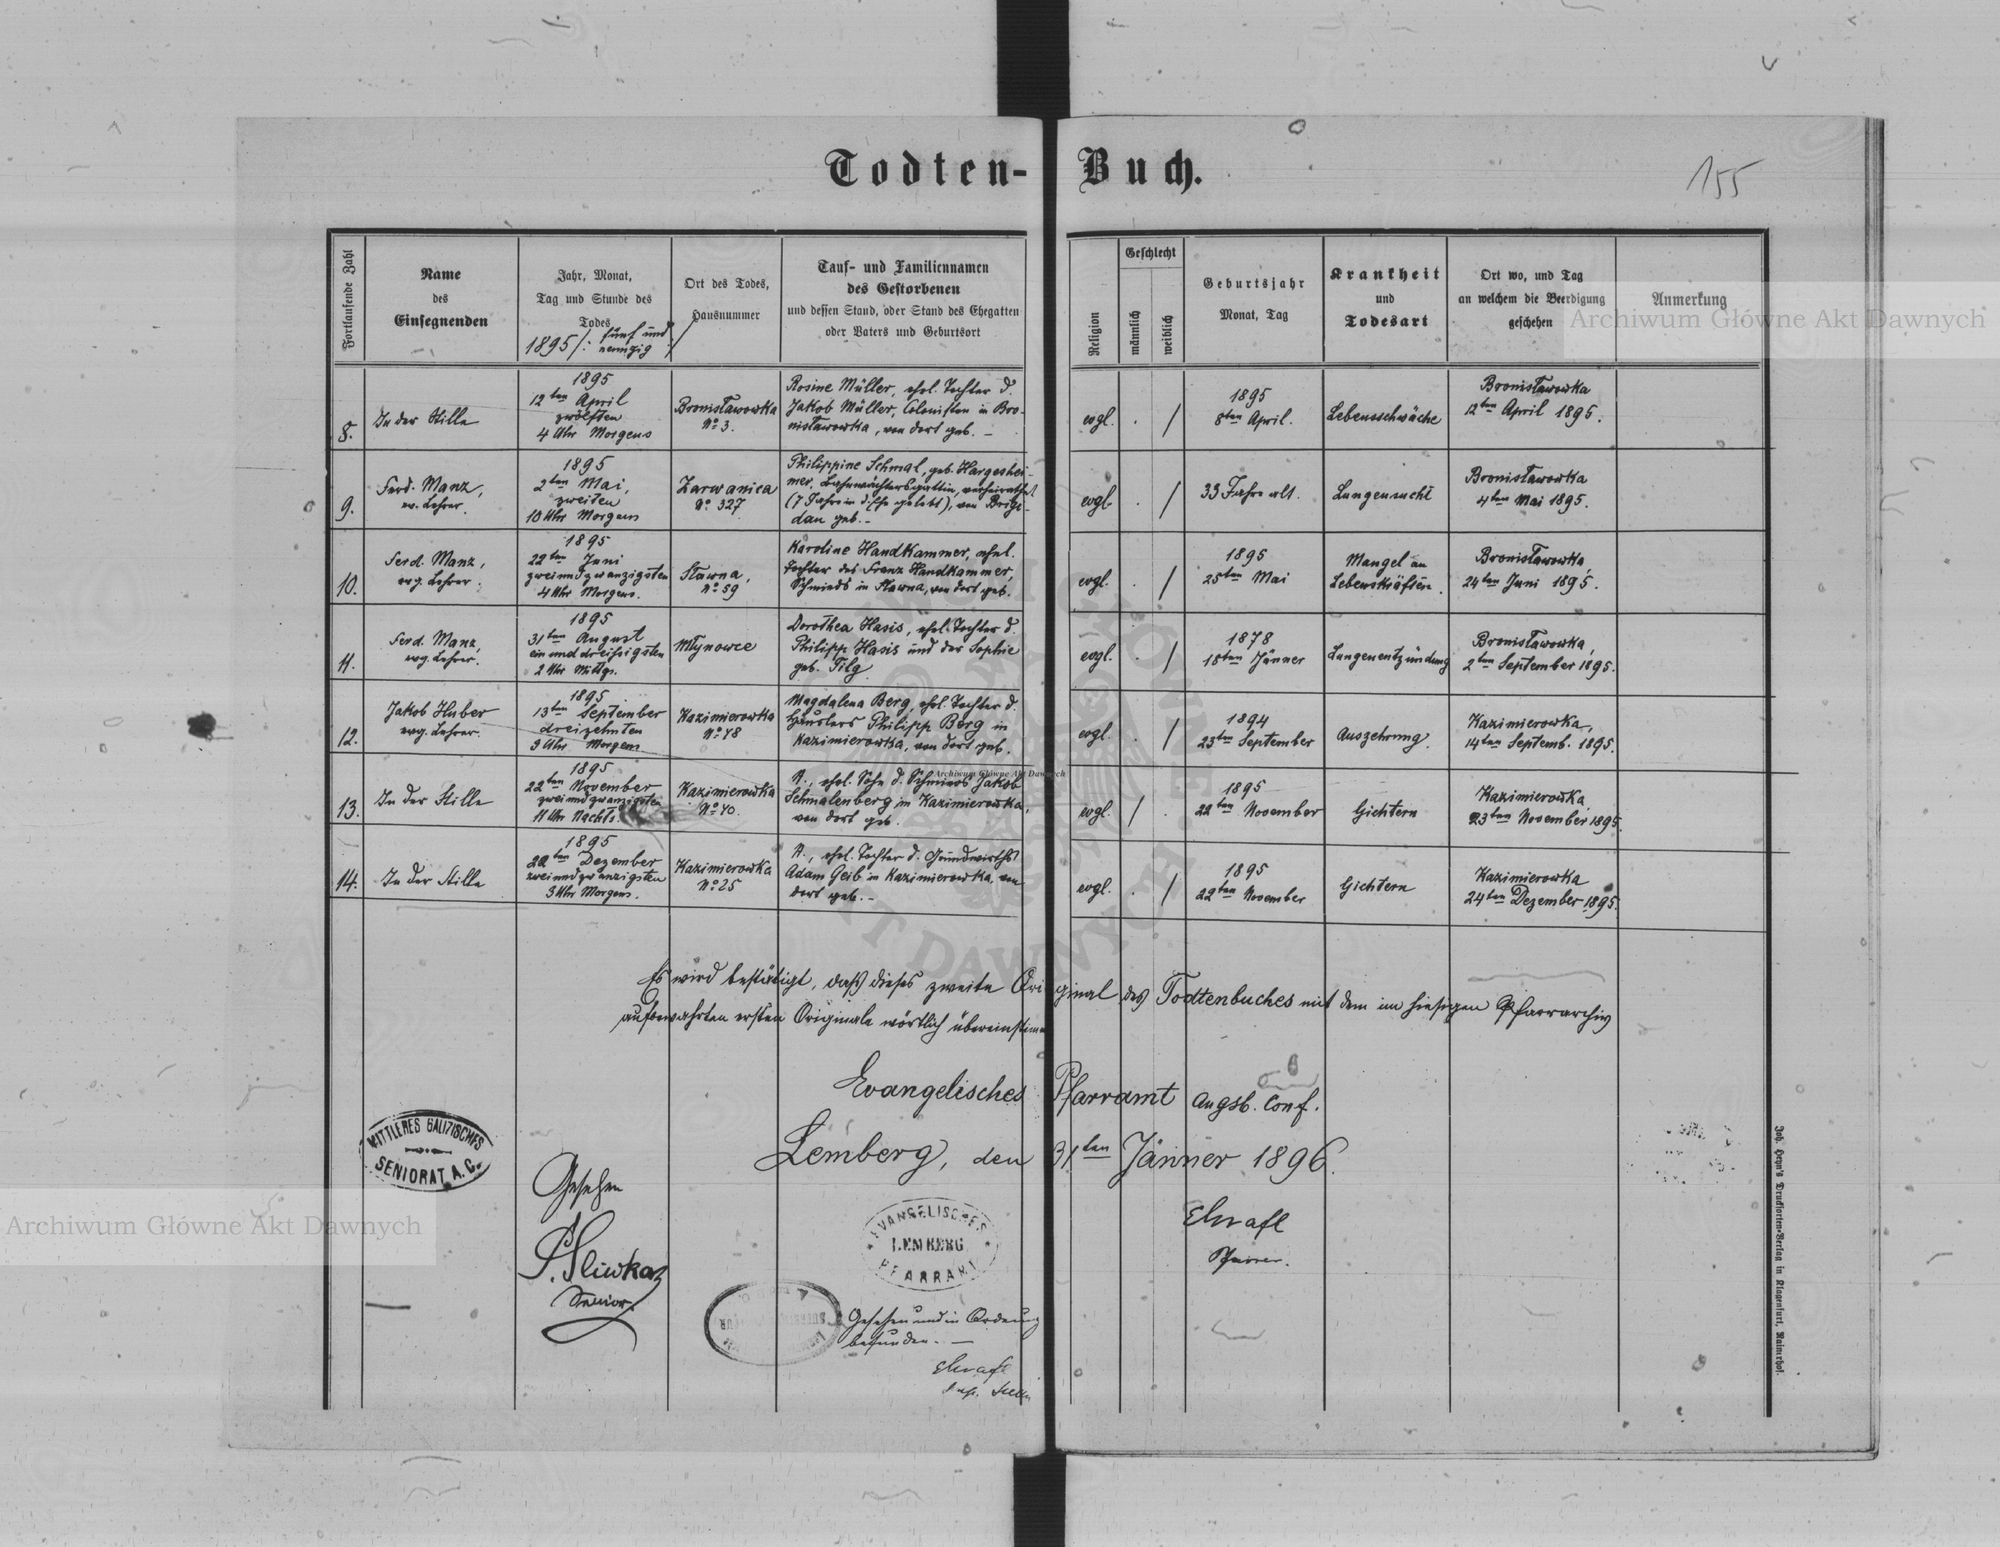 Todten-Buch.
155
Fortlaufende Zahl
Name
des
Einsegnenden
Jahr, Monat,
Tag und Stunde des
Todes
1895 /: fünf und
neunzig :/
Ort des Todes,
Hausnummer
Tauf- und Familiennamen
des Gestorbenen
und dessen Stand, oder Stand des Ehegatten
oder Vaters und Geburtsort
Religion
Geschlecht
männlich
weiblich
Geburtsjahr
Monat, Tag
Krankheit
und
Todesart
Ort wo, und Tag
an welchem die Beerdigung
geschehen
Anmerkung
8.
In der Stille
1895
12ten April
zwölften
4 Uhr Morgens
Bronisławowka
No 3.
Rosine Müller, ehel. Tochter d.
Jakob Müller, Colonisten in Bro-
nisławowka, von dort geb. –
evgl.
. /
1895
8ten April.
Lebensschwäche
Bronisławowka
12ten April 1895.
9.
Ferd. Manz,
ev. Lehrer.
1895
2ten Mai,
zweiten
10 Uhr Morgens
Zarwanica
No 327
Philippine Schmal, geb. Hargeshei-
mer, Bahnwächtersgattin, verheirathet
(7 Jahre in d. Ehe gelebt), von Brigi-
dau geb. –
evgl.
. /
33 Jahre alt.
Lungensucht
Bronisławowka
4ten Mai 1895.
10.
Ferd. Manz,
evg. Lehrer.
1895
22ten Juni
zweiundzwanzigsten
4 Uhr Morgens.
Sławna,
No 59
Karoline Handkammer, ehel.
Tochter des Franz Handkammer,
Schmieds in Sławna, von dort geb.
evgl.
. /
1895
25ten Mai
Mangel an
Lebenskräften.
Bronisławowka,
24ten Juni 1895.
11.
Ferd. Manz,
evg. Lehrer.
1895
31ten August
ein und dreißigsten
2 Uhr Mittgs.
Młynowce
Dorothea Hasis, ehel. Tochter d.
Philipp Hasis und der Sophie
geb. Filg
evgl.
. /
1878
18ten Jänner
Lungenentzündung
Bronisławowka,
2ten September 1895.
12.
Jakob Huber
evg. Lehrer.
1895
13ten September
dreizehnten
9 Uhr Morgens
Kazimierowka
No 48
Magdalena Berg, ehel. Tochter d.
Häuslers Philipp Berg in
Kazimierowka, von dort geb.
evgl.
. /
1894
23ten September
Auszehrung.
Kazimierowka,
14ten Septemb. 1895.
13.
In der Stille
1895
22ten November
zweiundzwanzigsten
11 Uhr Nachts.
Kazimierowka
No 40.
N., ehel. Sohn d. Schmieds Jakob
Schmalenberg in Kazimierowka,
von dort geb.
evgl.
/ .
1895
22ten November
Gichtern
Kazimierowka,
23ten November 1895.
14.
In der Stille
1895
22ten Dezember
zweiundzwanzigsten
3 Uhr Morgens.
Kazimierowka
No 25
N., ehel. Tochter d. Grundwirths
Adam Geib in Kazimierowka, von
dort geb. –
evgl.
. /
1895
22ten November
Gichtern
Kazimierowka
24ten Dezember 1895.
Es wird bestätigt, daß dieses zweite Original des Todtenbuches mit dem im hiesigen Pfarrarchiv
aufbewahrten ersten Originale wörtlich übereinstimm
Evangelisches Pfarramt Augsb. Conf.
Lemberg, den 31ten Jänner 1896.
MITTLERES GALIZISCHES
SENIORAT A.C.
Gesehen
Senior
EVANGELISCHES
LEMBERG
PFARRAMT
Pfarrer.
Gesehen und in Ordnung
befunden. –
Joh. Heyn's Drucksorten-Verlag in Klagenfurt, Rainerhof.
Archiwum Główne Akt Dawnych
Archiwum Główne Akt Dawnych
Archiwum Główne Akt Dawnych